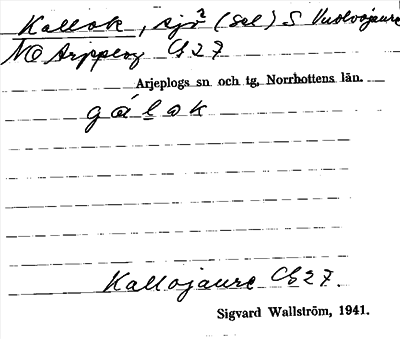 Kallok, sjö? (sel) S Vuolvojaure
NO Arjeplog Cb27
Arjeplogs sn och tg, Norrbottens län.
gálok
Kallojaure Cb27.
Sigvard Wallström, 1941.